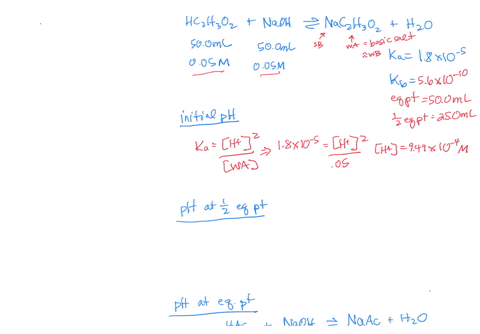 HC₂H₃O₂ + NaOH ⇌ NaC₂H₃O₂ + H₂O
50.0mL 50.0mL SB WA = basic salt
≈WB
0.05M 0.05M
Ka = 1.8×10⁻⁵
Kb = 5.6×10⁻¹⁰
eq pt = 50.0mL
½ eq pt = 25.0mL
initial pH
Ka = [H⁺]² / [WA] ⇒ 1.8×10⁻⁵ = [H⁺]² / .05 [H⁺] = 9.49×10⁻⁴ M
pH at ½ eq pt
pH at eq. pt
HAc + NaOH ⇌ NaAc + H₂O